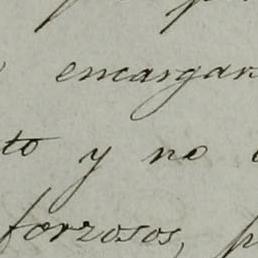 encargar
to y no
forzosos, p